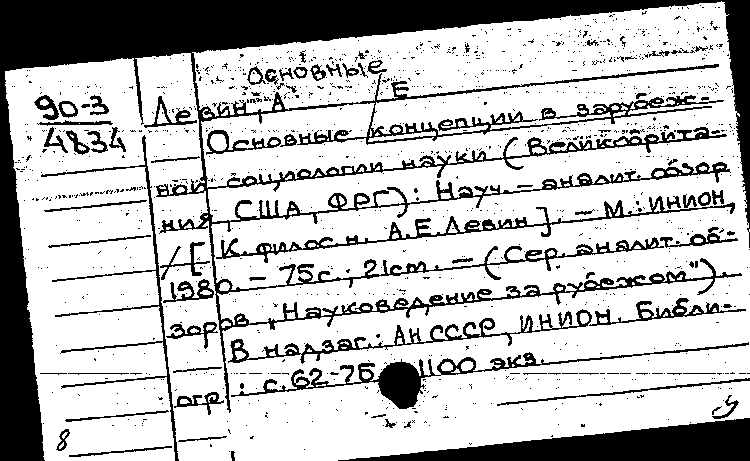 Основные
90-3
4834
Левин, А Е
Основные концепции в зарубеж-
ной социологии науки (Великобрита-
ния, США, ФРГ): Науч.-аналит. обзор
/ [К. филос. н. А.Е. Левин]. — М.: ИНИОН,
1980. — 75с.; 21см. — (Сер. аналит. об-
зоров „Науковедение за рубежом").
В надзаг.: АН СССР, ИНИОН. Библи-
огр.: с. 62-75 1100 экз.
8